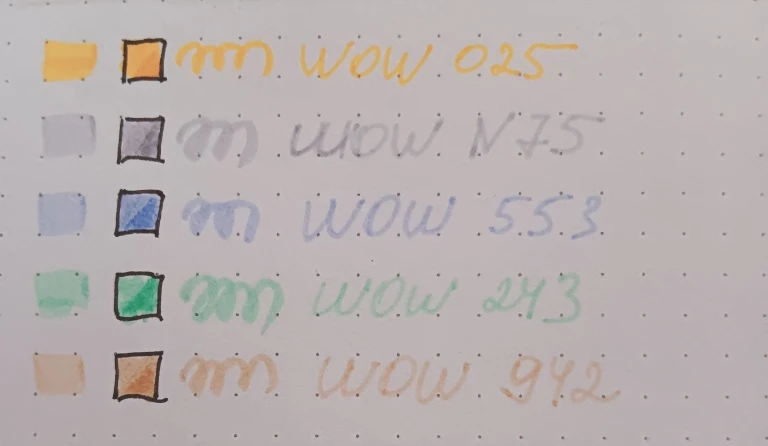 WOW 025
WOW N75
WOW 553
WOW 243
WOW 942